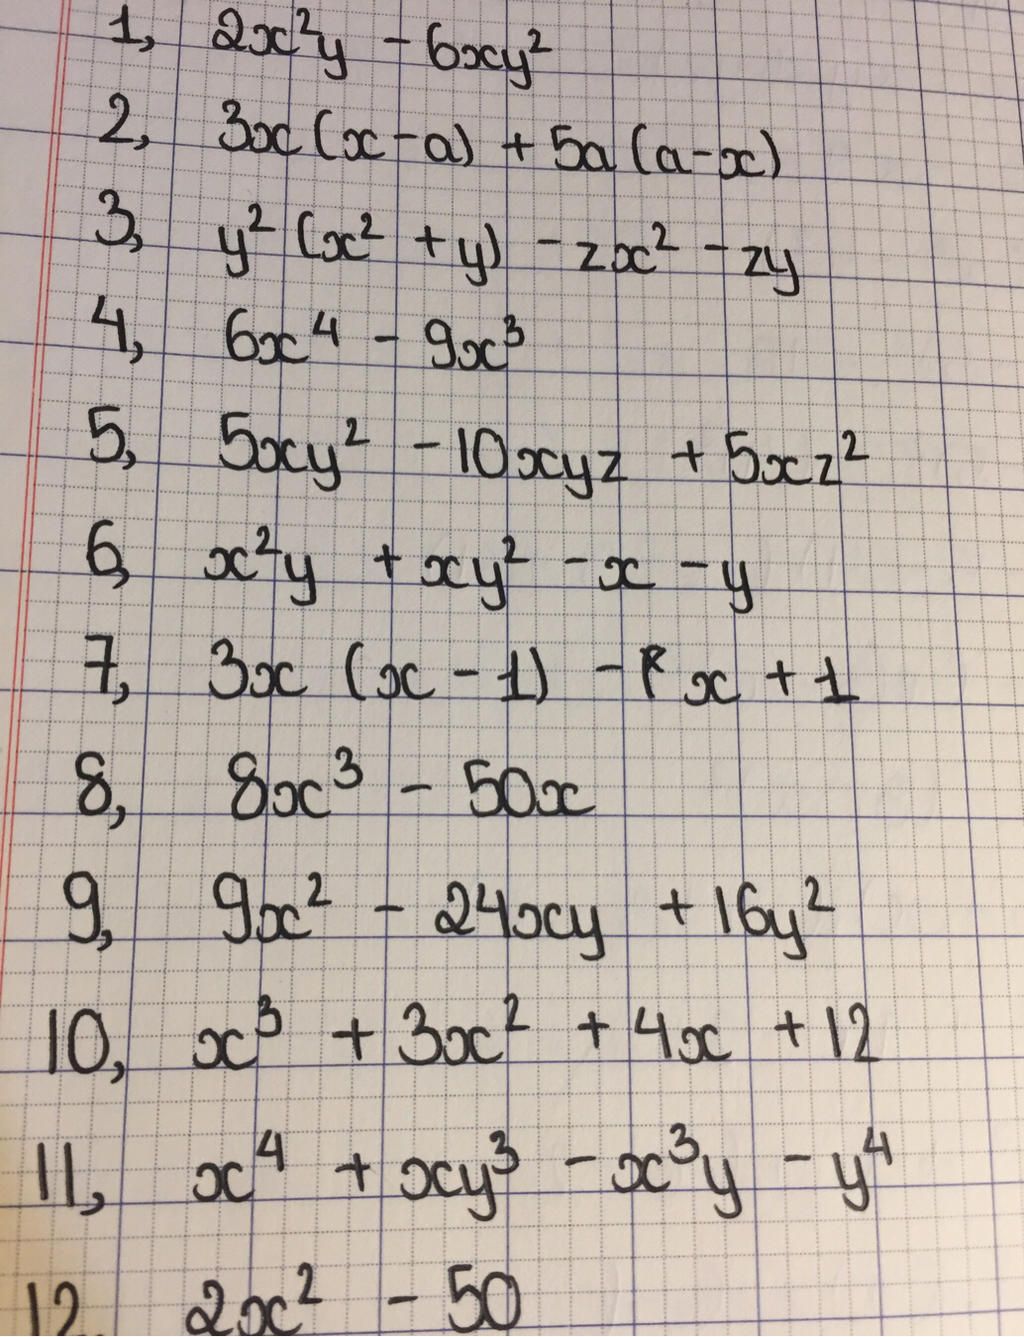 1, 2x²y - 6xy²
2, 3x (x - a) + 5a (a - x)
3, y² (x² + y) - zx² - zy
4, 6x⁴ - 9x³
5, 5xy² - 10xyz + 5xz²
6, x²y + xy² - x - y
7, 3x (x - 1) - x + 1
8, 8x³ - 50x
9, 9x² - 24xy + 16y²
10, x³ + 3x² + 4x + 12
11, x⁴ + xy³ - x³y - y⁴
12, 2x² - 50